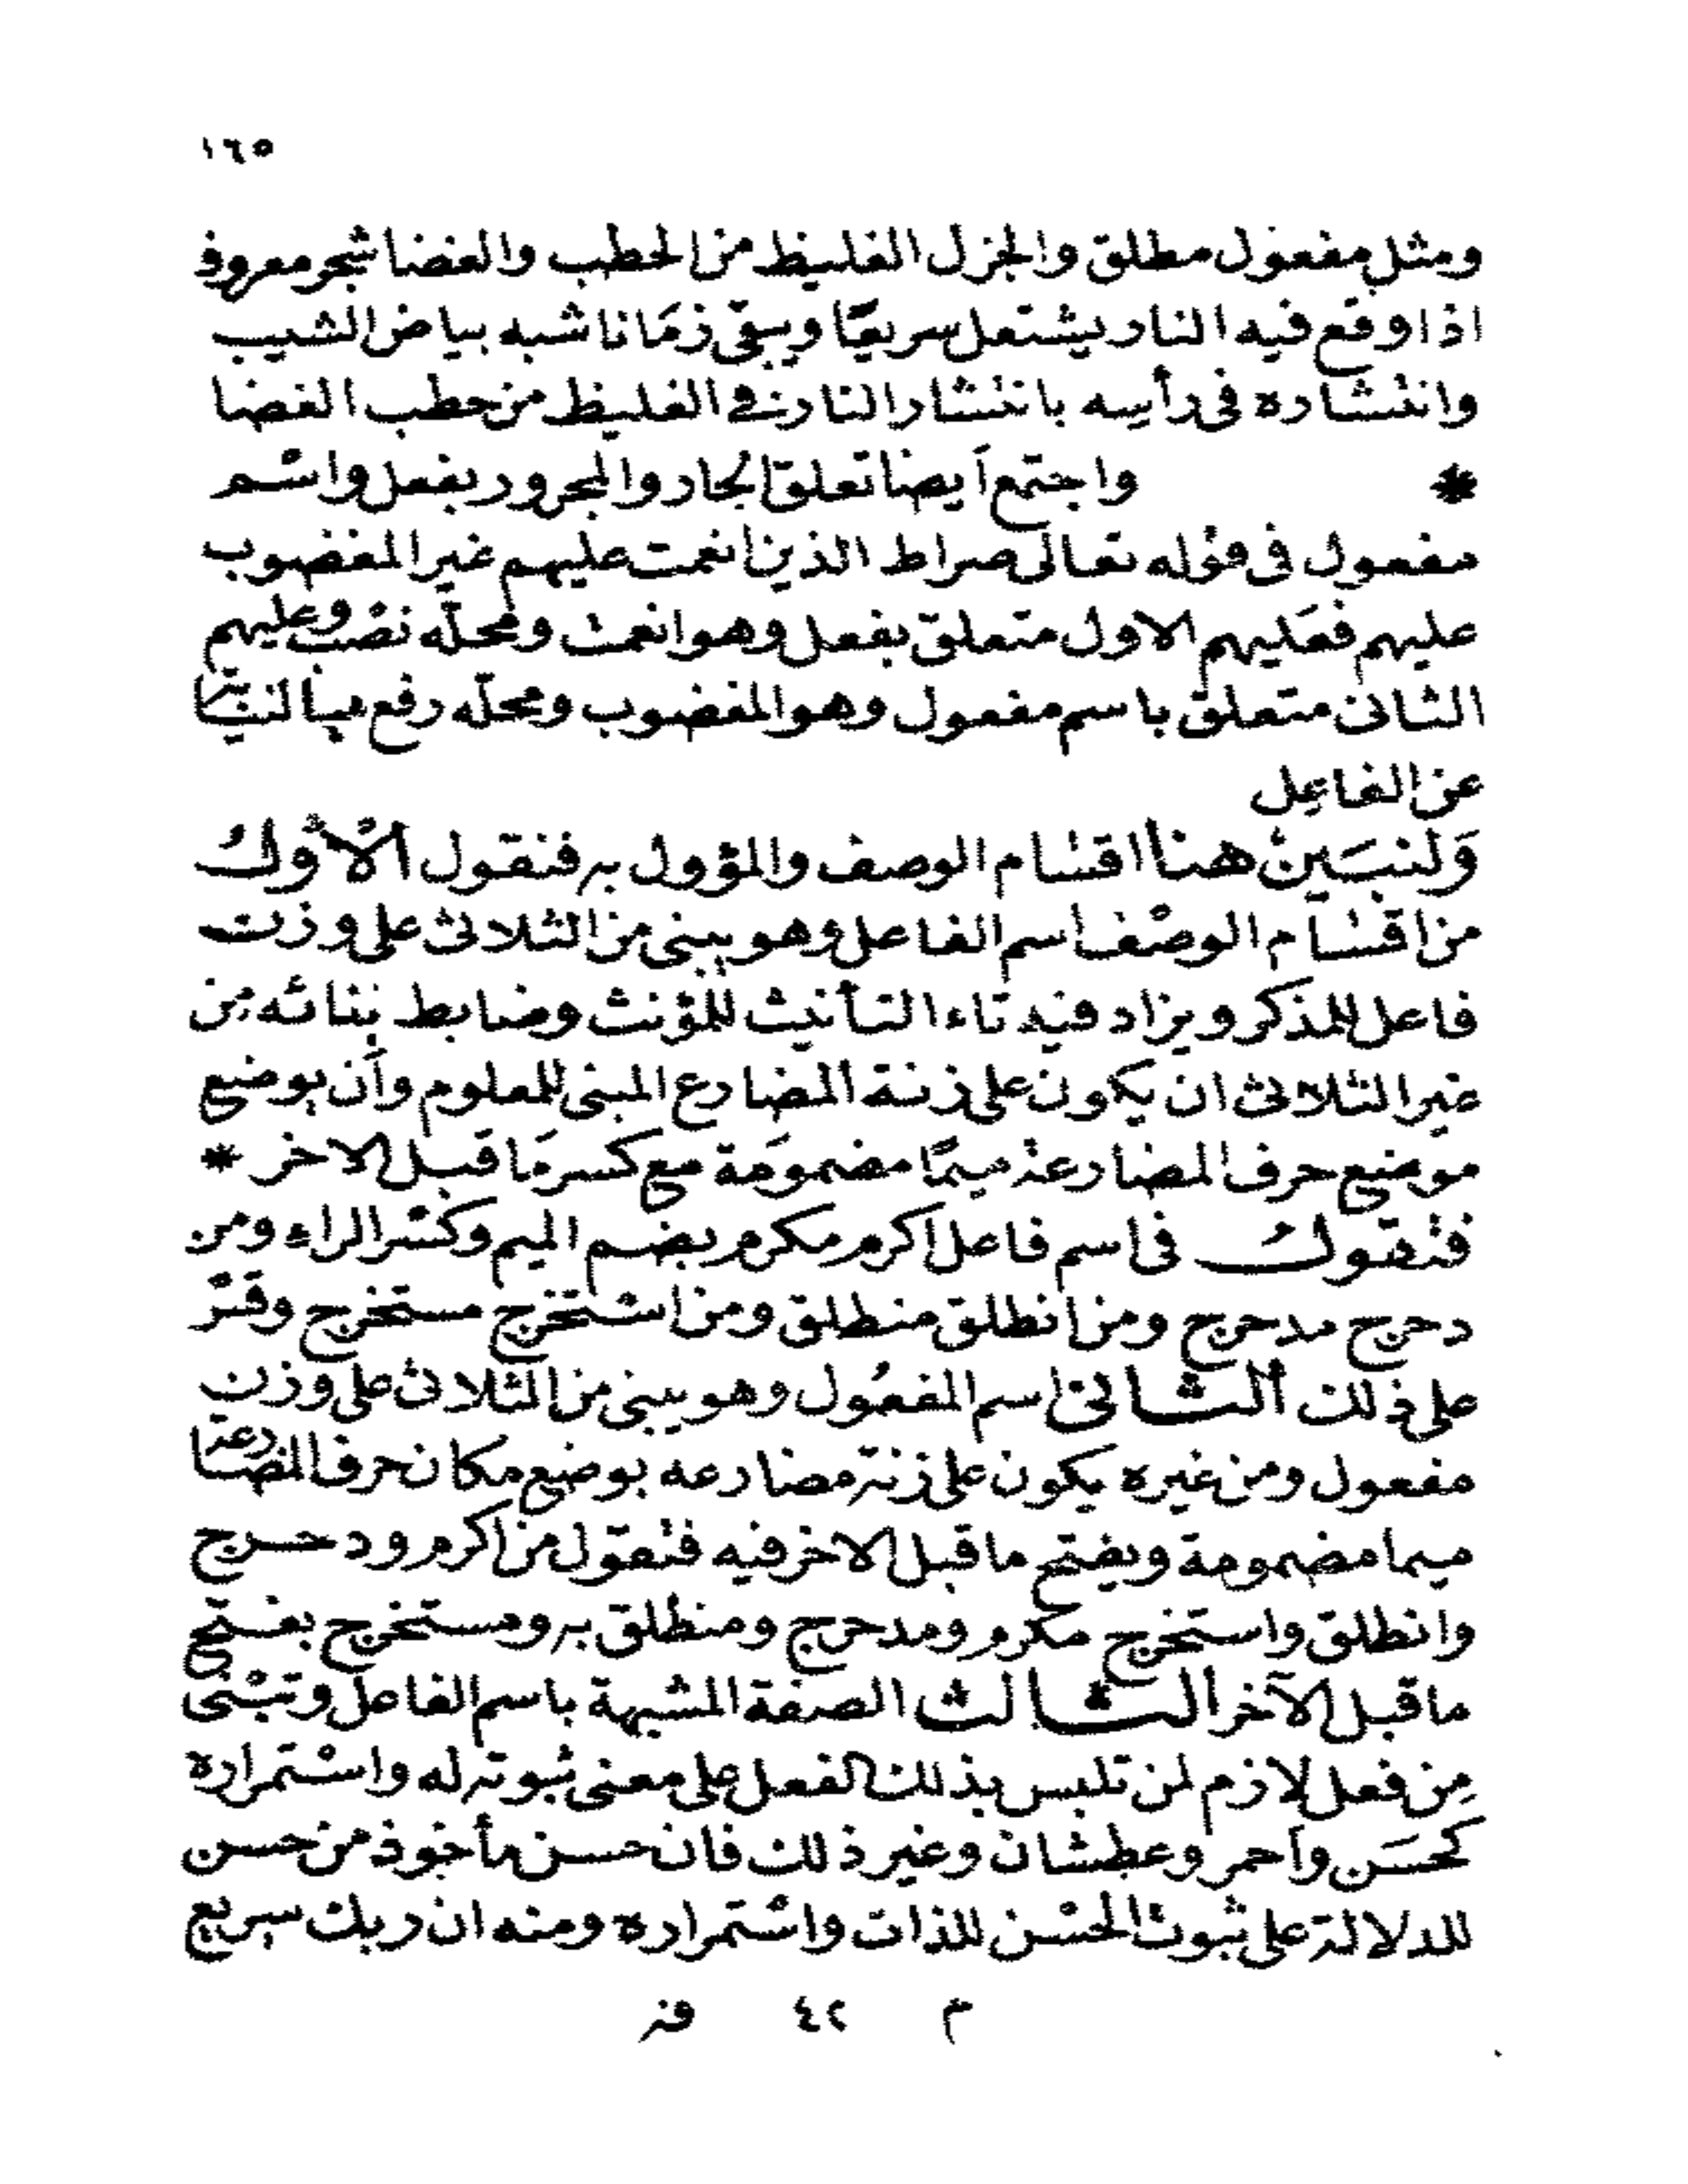 ١٦٥
ومثل مفعول مطلق والجزل الغليظ من الحطب والغضا شجر معروف
اذا وقع فيه النار يشتعل سريعًا ويبقى زمَانا شبه بياض الشيب
وانتشاره فى رأسه بانتشار النار فى الغليظ من حطب الغضا
* واجتمع اَيضا تعلق الجار والمجرور بفعل واسم
مفعول فى قوله تعالى صراط الذين انعمت عليهم غير المغضوب
عليهم فعَليهم الاول متعلق بفعل وهو انعمت ومحلّه نصْب وعليهم
الثانى متعلق باسم مفعول وهو المغضوب ومحلّه رفع بالنيابة
عن الفاعِل
وَلنبَين هنا اقسام الوصف والمؤول به فنقول الْاَوْلُ
من اقسَام الوصْف اسم الفاعل وهو يبنى من الثلاثى على وزن
فاعل للمذكر ويزاد فيه تاء التأنيث للمؤنث وضابط بنائه مِن
غير الثلاثى ان يكون على زنة المضارع المبنى للمعلوم وأن يوضع
موضع حرف المضارعة ميمًا مضمومَة مع كسر مَا قبل الاخر *
فتقولُ فى اسم فاعل اكرم مكرم بضم الميم وكسْر الراء ومن
دحرج مدحرج ومن انطلق منطلق ومن استخرج مستخرج وقسْ
على ذلك الثانى اسم المفعُول وهو يبنى من الثلاثى على وزن
مفعول ومن غيره يكون على زنة مضارعه بوضع مكان حرف المضارعة
ميما مضمومة ويفتح ما قبل الاخر فيه فتقول من اكرم ودحرج
وانطلق واستخرج مكرم ومدحرج ومنطلق به ومستخرج بفتح
ما قبل الآخر الثالث الصفة المشبهة باسم الفاعل وتبْنى
مِن فعل لازم لمن تلبس بذلك الفعل على معنى ثبوته له واسْتمراره
كحسَن واَحمر وعطشان وغير ذلك فان حسن مأخوذ من حسن
للدلالة على ثبوت الحسْن للذات واسْتمراره ومنه ان ربك سريع
م ٤٢ فز